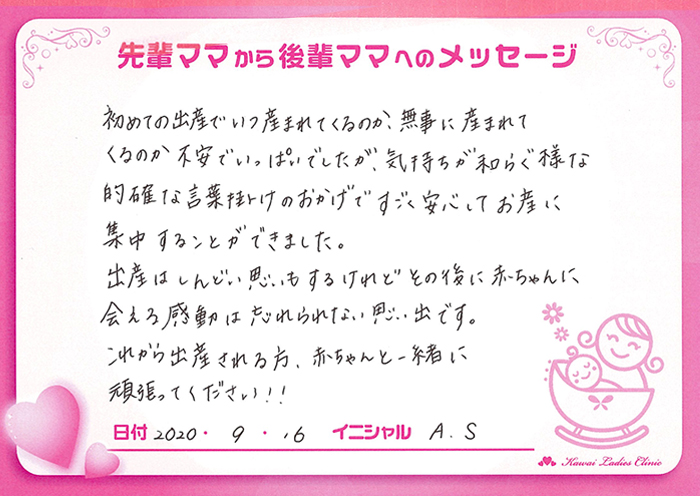 先輩ママから後輩ママへのメッセージ
初めての出産でいつ産まれてくるのか、無事に産まれて
くるのか不安でいっぱいでしたが、気持ちが和らぐ様な
的確な言葉掛けのおかげですごく安心してお産に
集中することができました。
出産はしんどい思いもするけれどその後に赤ちゃんに
会える感動は忘れられない思い出です。
これから出産される方、赤ちゃんと一緒に
頑張ってください!!
日付 2020・9・16 イニシャル A.S
Kawai Ladies Clinic